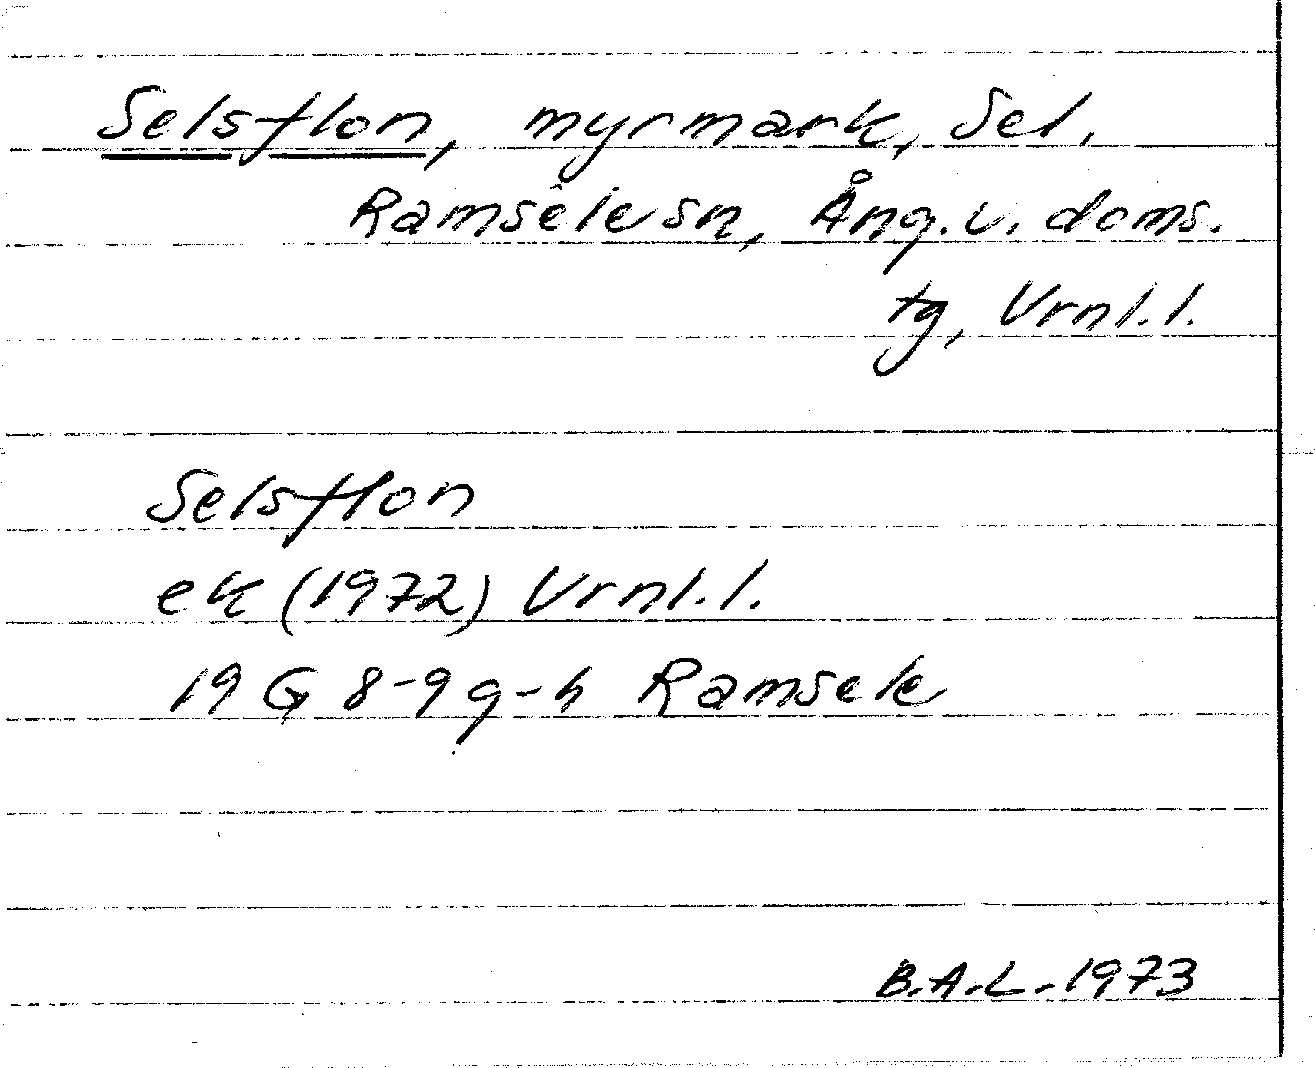 Selsflon, myrmark, Sel,
Ramsele sn, Ång.v. doms.
tg, Vrnl.l.
Selsflon
ek (1972) Vrnl.l.
19 G 8-9 g-h Ramsele
B.A.L. 1973